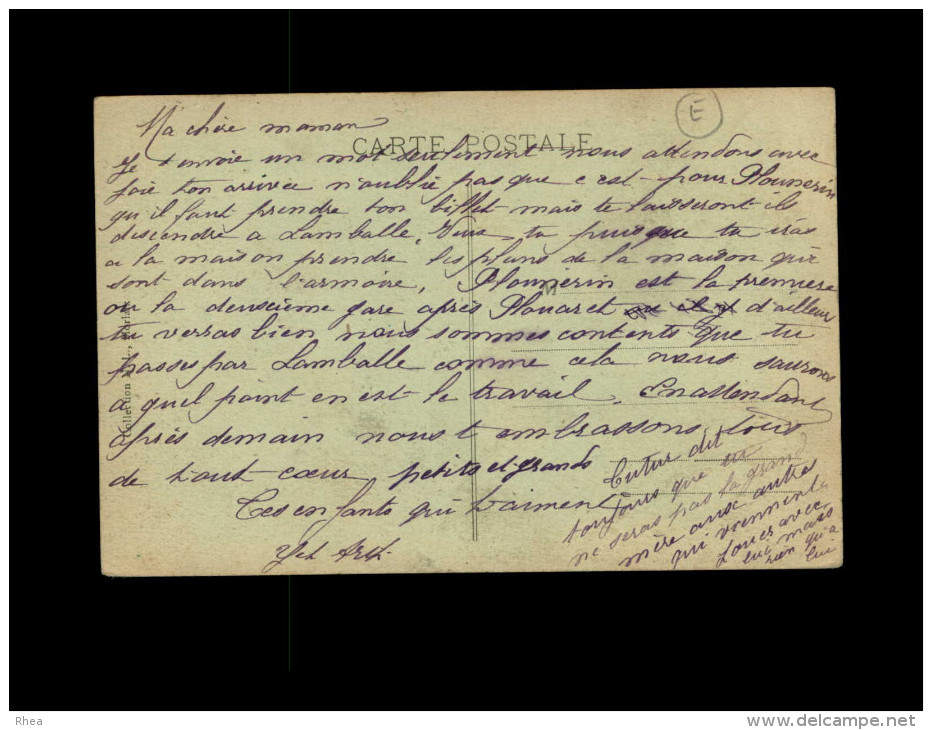 E
CARTE POSTALE
Ma chère maman
Je t envoie un mot seulement nous attendons avec
joie ton arrivée n'oublie pas que c est pour Plounerin
qu il faut prendre ton billet mais te laisseront ils
descendre a Lamballe, tu puisque tu iras
a la maison prendre les plans de la maison qui
sont dans l'armoire, Plounérin est la première
ou la deuxième gare après Plouaret d'ailleur
tu verras bien nous sommes contents que tu
passes par Lamballe comme cela nous saurons
a quel point en est le travail. En attendant
après demain nous t embrassons tous
de tout cœur petits et grands
Tes enfants qui t'aiment
dit
toujours que tu
ne seras pas la grand
mère aux autres
qui viennent
jouer avec
lui mais
rien qu'a
lui
Collection
Rhea
www.delcampe.net